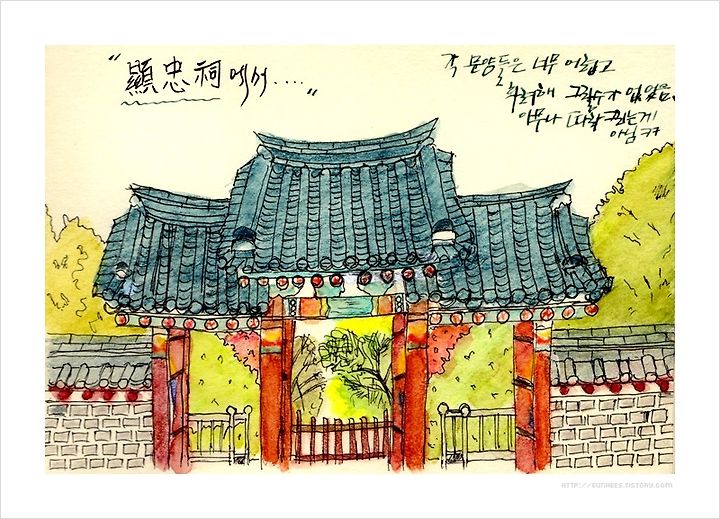 "顯忠祠에서...."
각 문양들은 너무 어렵고
화려해 그릴수가 없었음.
아무나 따라 그리는게
아님 ㅋㅋ
HTTP://EUNHEES.TISTORY.COM